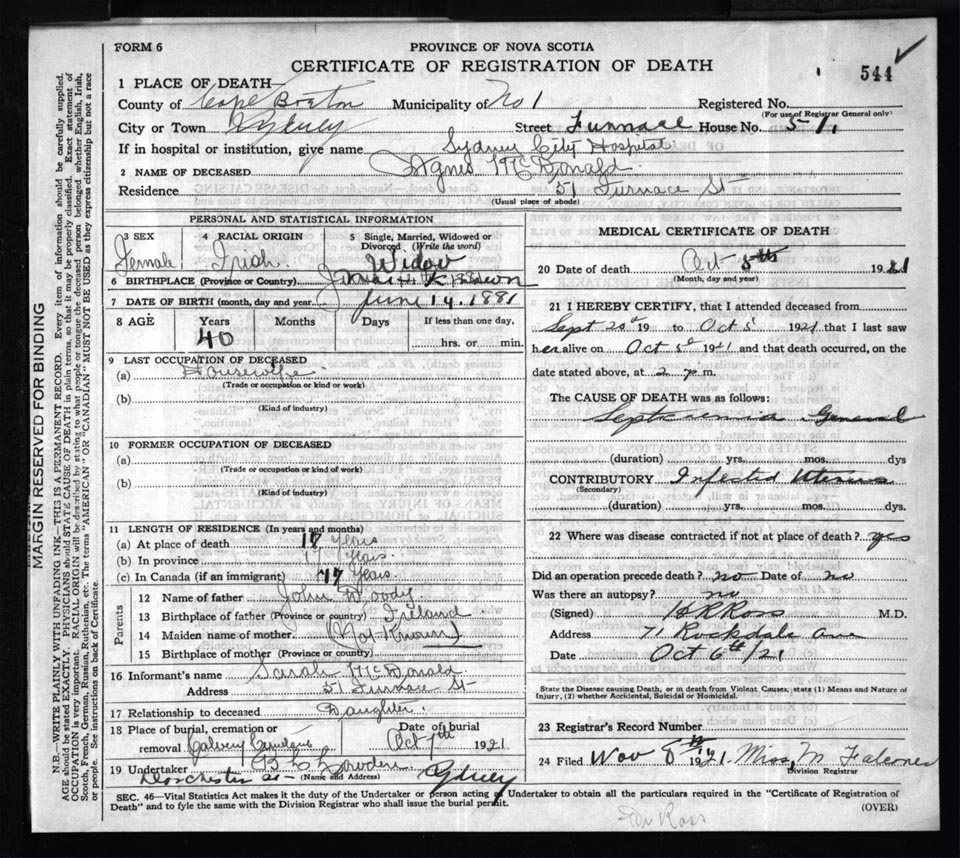 FORM 6
PROVINCE OF NOVA SCOTIA
CERTIFICATE OF REGISTRATION OF DEATH
544
1 PLACE OF DEATH—
County of Cape Breton Municipality of No 1 Registered No.
(For use of Registrar General only)
City or Town Sydney Street Furnace House No. 51
If in hospital or institution, give name Sydney City Hospital
2 NAME OF DECEASED Agnes McDonald
Residence 51 Furnace St
(Usual place of abode)
PERSONAL AND STATISTICAL INFORMATION
3 SEX Female
4 RACIAL ORIGIN Irish
5 Single, Married, Widowed or Divorced (Write the word) Widow
6 BIRTHPLACE (Province or Country)
7 DATE OF BIRTH (month, day and year) June 14. 1881
8 AGE Years 40 Months Days If less than one day, hrs. or min.
9 LAST OCCUPATION OF DECEASED
(a) Housewife
(Trade or occupation or kind or work)
(b)
(Kind of industry)
10 FORMER OCCUPATION OF DECEASED
(a)
(Trade or occupation or kind of work)
(b)
(Kind of industry)
11 LENGTH OF RESIDENCE (In years and months)
(a) At place of death 17 Years
(b) In province 17 Years.
(c) In Canada (if an immigrant) 17 Years.
Parents
12 Name of father John Woody
13 Birthplace of father (Province or country) Ireland
14 Maiden name of mother (Not Known)
15 Birthplace of mother (Province or country)
16 Informant's name Sarah McDonald
Address 51 Furnace St
17 Relationship to deceased Daughter.
18 Place of burial, cremation or removal Calvery Date of burial Oct 7th 1921
19 Undertaker
Dorchester St (Name and Address) Sydney
MEDICAL CERTIFICATE OF DEATH
20 Date of death Oct 5th 1921
(Month, day and year)
21 I HEREBY CERTIFY, that I attended deceased from
Sept 20th 19 to Oct 5 1921 that I last saw
her alive on Oct 5th 1921 and that death occurred, on the
date stated above, at 2 p m.
The CAUSE OF DEATH was as follows:
Septicaemia General
(duration) yrs. mos. dys
CONTRIBUTORY Infected Uterus
(Secondary)
(duration) yrs. mos. dys.
22 Where was disease contracted if not at place of death? yes
Did an operation precede death? no Date of no
Was there an autopsy? no
(Signed) Ross M.D.
Address 71 Rockdale Ave
Date Oct 6th/21
State the Disease causing Death, or in death from Violent Causes, state (1) Means and Nature of
Injury, (2) whether Accidental, Suicidal or Homicidal.
23 Registrar's Record Number
24 Filed Nov 8th 1921. Miss M
Division Registrar
SEC. 46—Vital Statistics Act makes it the duty of the Undertaker or person acting as Undertaker to obtain all the particulars required in the "Certificate of Registration of
Death" and to fyle the same with the Division Registrar who shall issue the burial permit.
(OVER)
Dr Ross
MARGIN RESERVED FOR BINDING
N.B.—WRITE PLAINLY WITH UNFADING INK—THIS IS A PERMANENT RECORD. Every item of information should be carefully supplied.
AGE should be stated EXACTLY. PHYSICIANS should STATE CAUSE OF DEATH in plain terms, so that it may be properly classified. Exact statement of
OCCUPATION is very important. RACIAL ORIGIN will be described by stating to what people or tongue the deceased person belonged whether English, Irish,
Scotch, French, German, Russian, Ruthenian, etc. The terms "AMERICAN" OR "CANADIAN" MUST NOT BE USED as they express citizenship but not a race
or people. See instructions on back of Certificate.